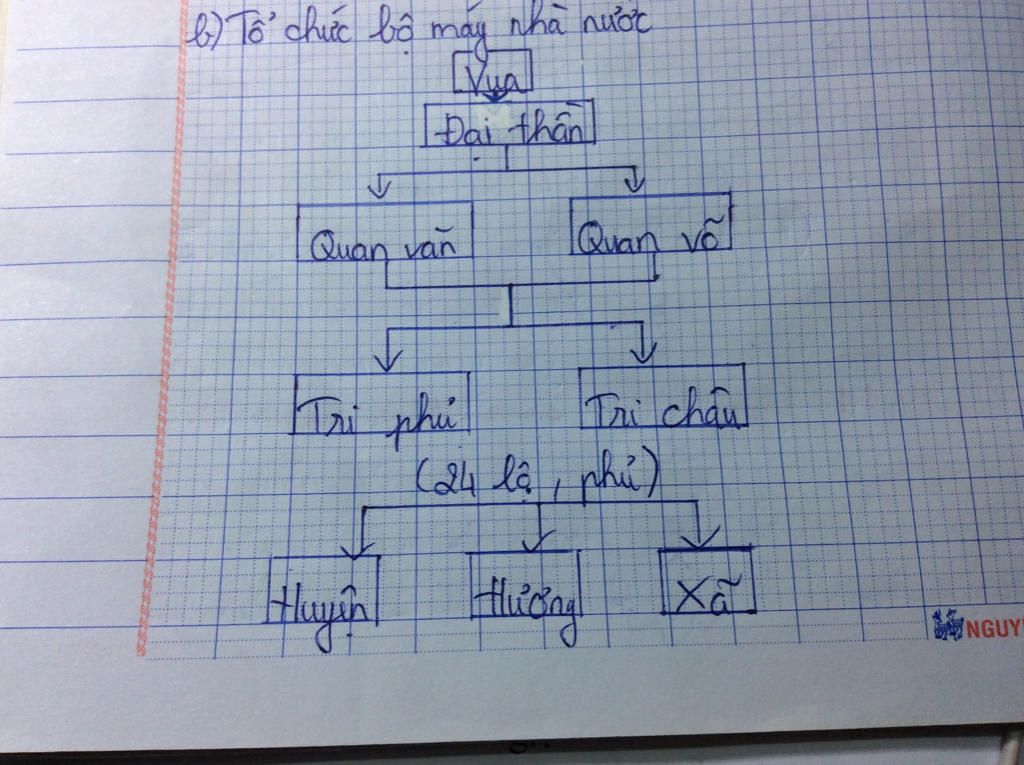 b) Tổ chức bộ máy nhà nước
Vua
Đại thần
Quan văn Quan võ
Tri phủ Tri châu
(24 lộ, phủ)
Huyện Hương Xã
NGUY